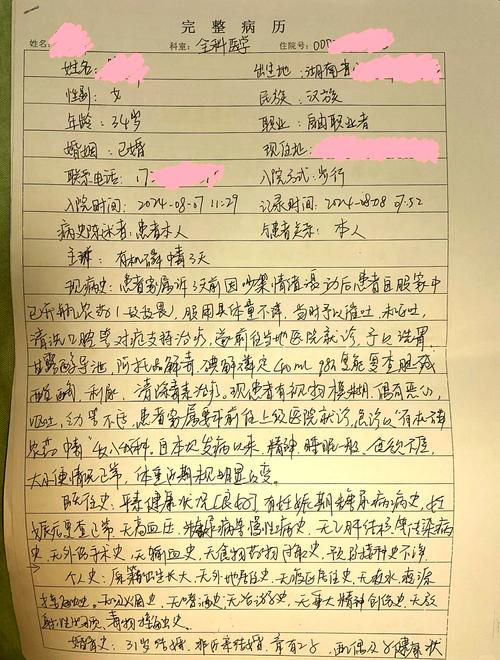 完整病历
姓名: 科室: 全科医学 住院号: 00
姓名: 出生地: 湖南省
性别: 女 民族: 汉族
年龄: 34岁 职业: 自由职业者
婚姻: 已婚 现住址:
联系电话: 17 入院方式: 步行
入院时间: 2024-08-07 11:29 记录时间: 2024-08-08 07:52
病史陈述者: 患者本人 与患者关系: 本人
主诉: 有机磷中毒3天
现病史: 患者家属诉3天前因吵架情绪激动后患者自服家中
已存 农药(敌敌畏), 服用具体量不详, 当时予以催吐
清洗口腔等对症支持治疗, 遂前往当地医院就诊, 予以洗胃
甘露醇导泄, 阿托品解毒, 碘解磷定 复查胆碱
酯酶, 利尿, 治疗。现患者有视物模糊, 偶有恶心,
呕吐, 患者家属要求前往上级医院就诊, 急诊以“有机磷
农药中毒”收入我科。自本次发病以来, 精神、睡眠一般, 食欲下降,
大小便情况正常, 体重近期未见明显改变。
既往史: 平素健康状况[良好] 有妊娠期糖尿病病史,
复查正常 无高血压、 等慢性病史, 无 结核等传染病
史, 无外伤手术史, 无输血史, 无食物药物过敏史, 预防接种史不详
个人史: 原籍出生长大, 无外地居住史, 无疫区居住史, 无疫水、疫源
接触史。 无吸烟史, 无嗜酒史, 无冶游史, 无重大精神创伤史, 无放
射性物质、毒物接触史。
婚育史: 31岁结婚, 非近亲结婚, 育有2子, 配偶及子健康状